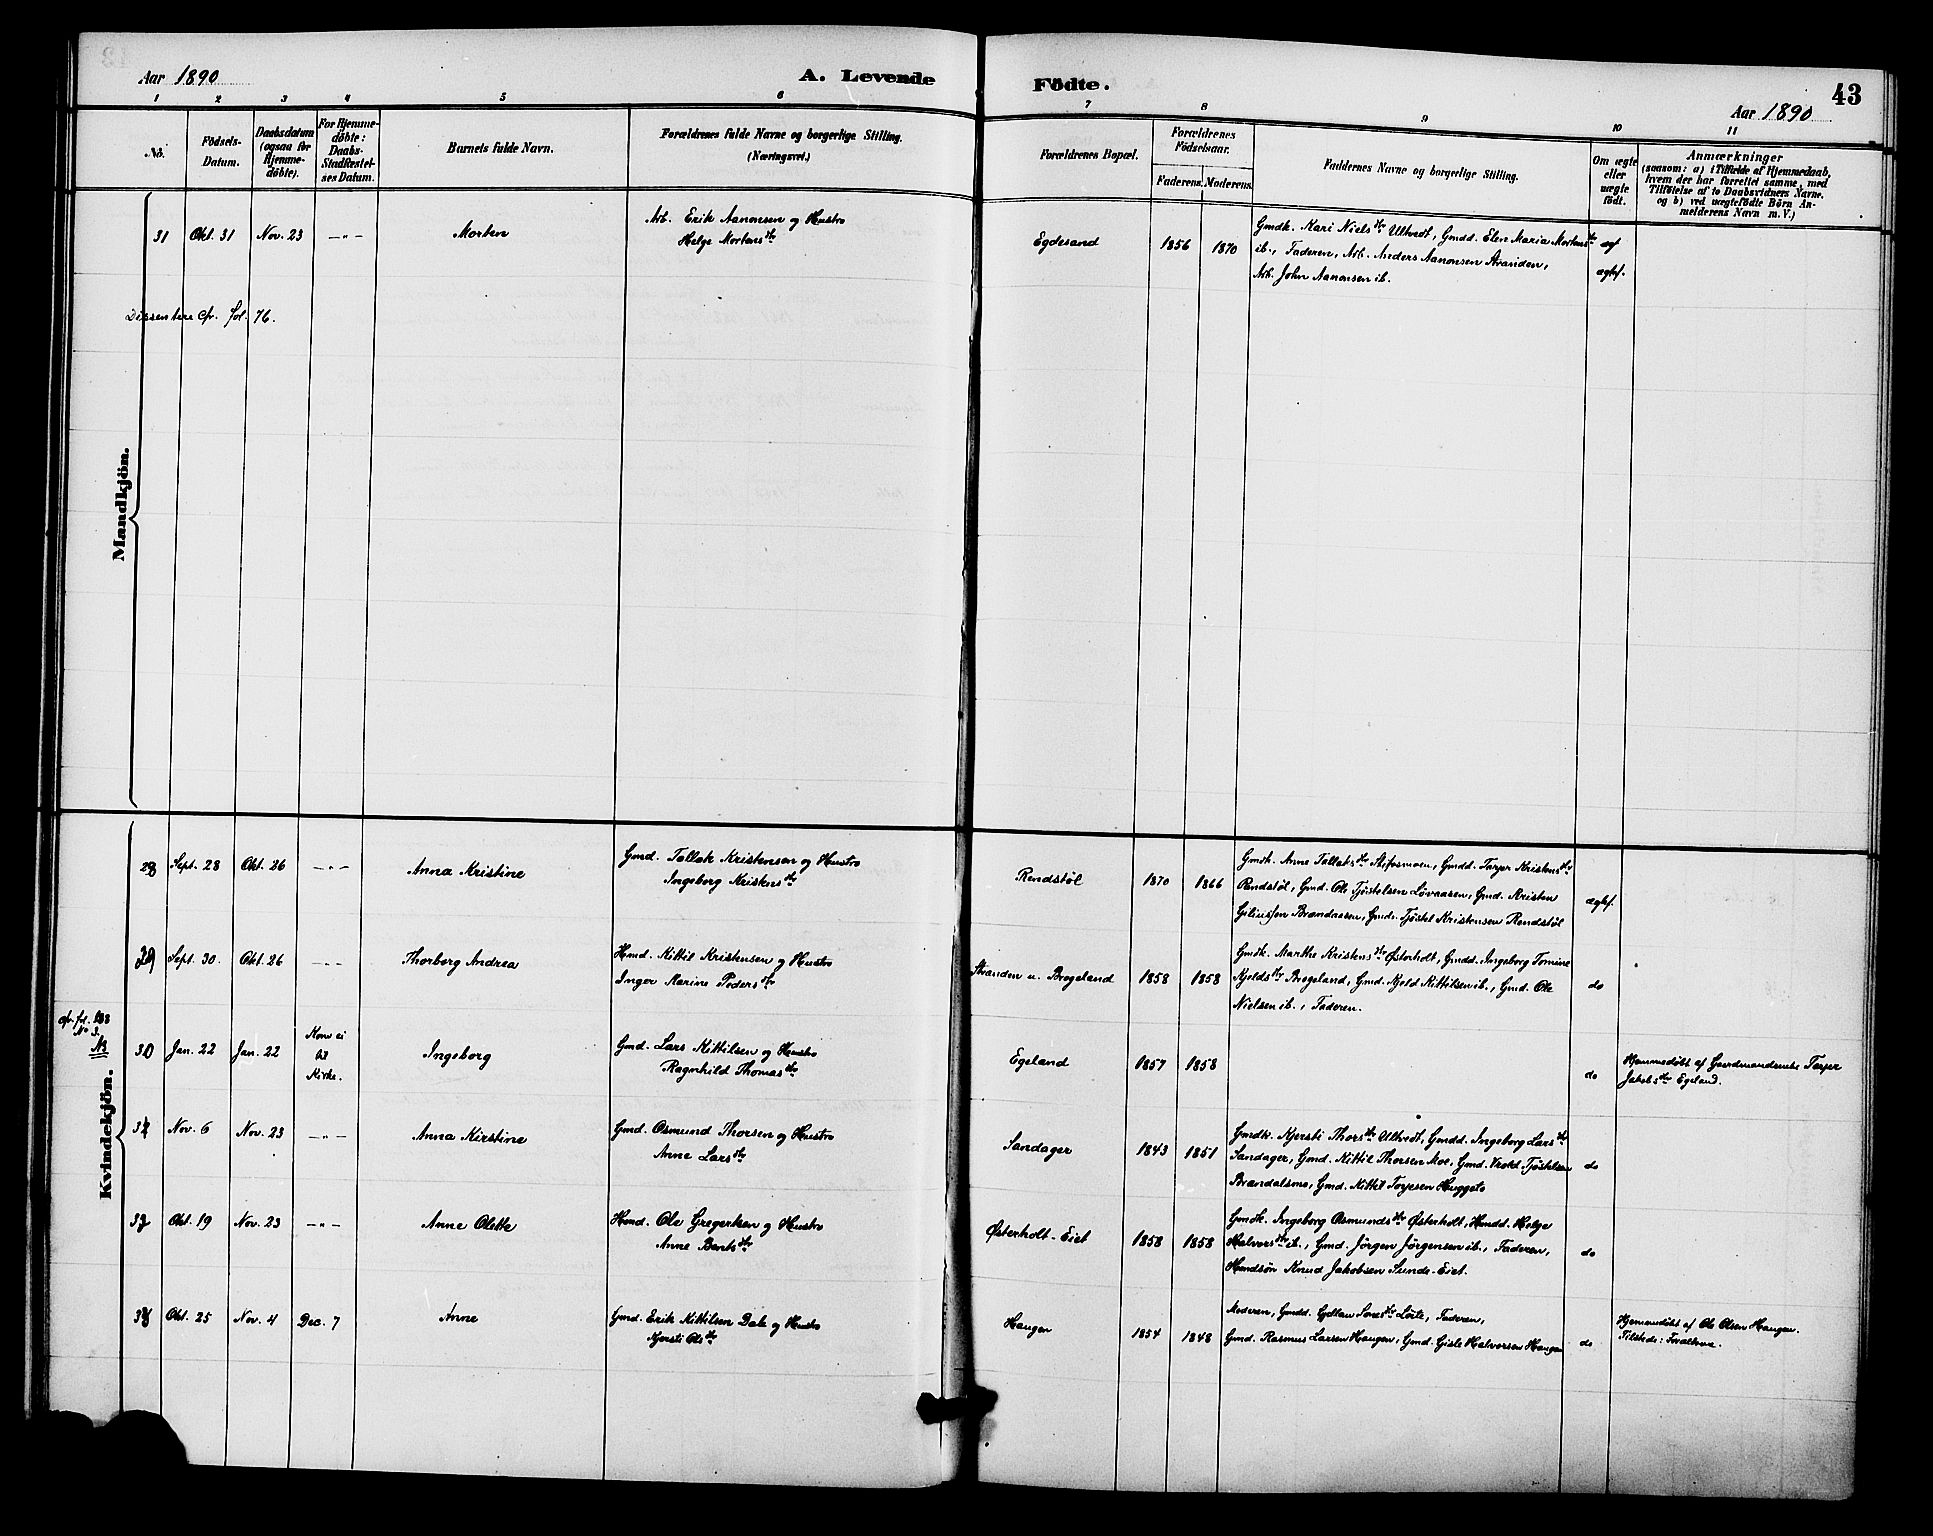 Aar 1890
A. Levende Födte.
Aar 1890
43
1 2 3 4 5 6 7 8 9 10 11
No.
Födsels-
Datum.
Daabsdatum
(ogsaa for
Hjemme-
döbte).
For Hjemme-
döbte:
Daabs-
Stadfæstel-
ses Datum.
Barnets fulde Navn.
Forældrenes fulde Navne og borgerlige Stilling.
(Næringsvei.)
Forældrenes Bopæl.
Forældrenes
Födselsaar.
Faderens. Moderens.
Faddernes Navne og borgerlige Stilling.
Om ægte
eller
uægte
födt.
Anmærkninger
(saasom: a) i Tilfælde af Hjemmedaab,
hvem der har forrettet samme, med
Tilföielse af to Daabsvidners Navne,
og b) ved uægtefödte Börn An-
melderens Navn m. V.)
Mandkjön.
31 Okt. 31 Nov. 23 -"- Morten
Arb. Erik Aanonsen og Hustro
Helge Mortensdtr
Egdesand 1856 1870
Gmdk. Kari Nielsdtr Ultvedt, Gmdd. Elen Maria Mortensdtr
ib., Faderen, Arb. Anders Aanonsen Stranden,
Arb. John Aanonsen ib.
ægtef.
Dissentere cfr. fol. 76.
Kvindekjön.
28 Sept. 28 Okt. 26 -"- Anna Kristine
Gmd. Tallak Kristensen og Hustro
Ingeborg Kristensdtr
Rendstöl 1870 1866
Gmdk. Anne Tallaksdtr Stifosmoen, Gmdd. Torjer Kristensdtr
Rendstöl, Gmd. Ole Tjöstelsen Lövaasen, Gmd. Kristen
Giliussen Brandaasen, Gmds. Tjöstel Kristensen Rendstöl
ægtef.
29 Sept. 30. Okt. 26 -"- Thorborg Andrea
Hmd. Kittil Kristensen og Hustro
Inger Marine Pedersdtr
Stranden u. Brogeland 1858 1858
Gmdk. Marthe Kristensdtr Østerholt, Gmdd. Ingeborg Tomine
Kjeldsdtr Brogeland, Gmd. Kjeld Kittilsen ib., Gmd. Ole
Nielsen ib., Faderen.
do
cfr. fol. 238
No 3.
NB
30 Jan. 22 Jan. 22
Kom ei
til
Kirke.
Ingeborg
Gmd. Lars Kittilsen og Hustro
Ragnhild Thomasdtr
Egeland 1857 1858
do
Hjemmedöbt af Gaardmandsenke Torjer
Jakobsdtr Egeland.
31 Nov. 6 Nov. 23 -"- Anna Kirstine
Gmd. Osmund Thorsen og Hustro
Anne Larsdtr
Sandager 1843 1851
Gmdk. Kjersti Thorsdtr Ultvedt, Gmdd. Ingeborg Larsdtr
Sandager, Gmd. Kittil Thorsen Moe, Gmd. Vrold Tjöstelsen
Brandalsmo, Gmd. Kittil Torjesen Huggeto
do
32 Okt. 19 Nov. 23 -"- Anne Olette
Hmd. Ole Gregersen og Hustro
Anne Bentsdtr
Østerholt-Eiet 1858 1858
Gmdk. Ingeborg Osmundsdtr Østerholt, Hmdd. Helge
Halvorsdtr ib., Gmd. Jörgen Jörgensen ib., Faderen,
Hmdsön Knud Jakobsen Sunde-Eiet.
do
33 Okt. 25 Nov. 4 Dec. 7 Anne
Gmd. Erik Kittilsen Dal og Hustro
Kjersti Olsdtr
Haugen 1854 1848
Moderen, Gmdd. Löite, Faderen,
Gmd. Rasmus Larsen Haugen, Gmd. Gisle Halvorsen Haugen
do
Hjemmedöbt af Ole Olsen Haugen.
Tilstede: